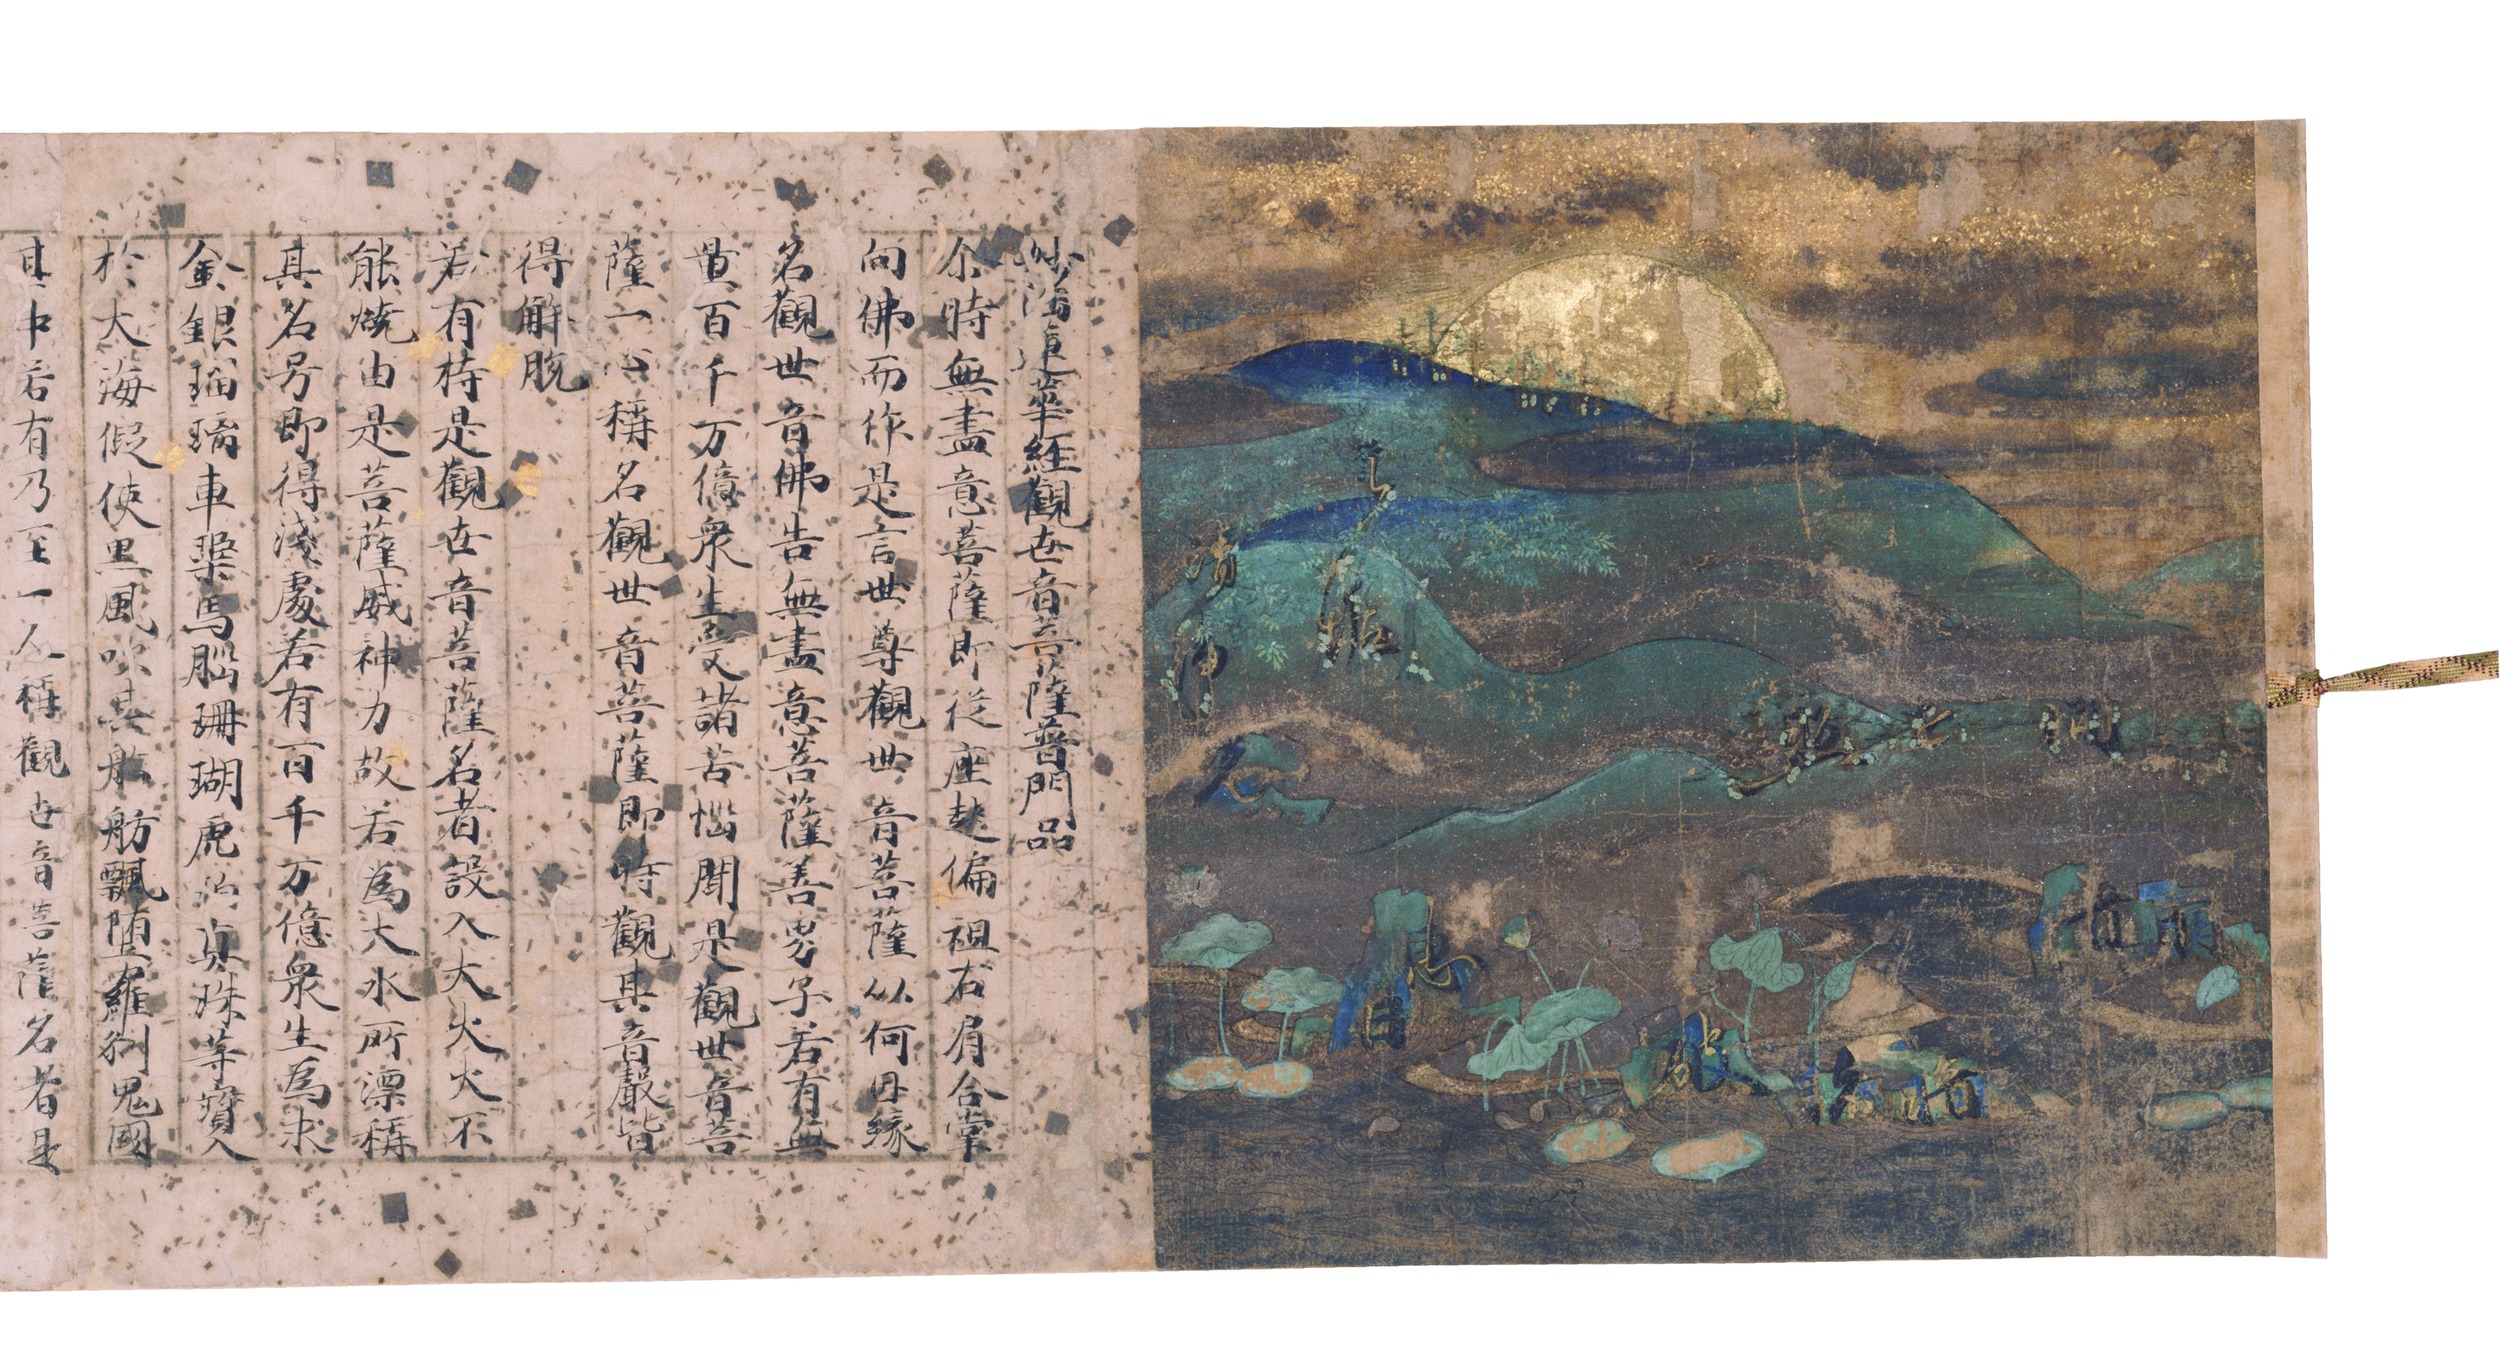 慧日
破
諸暗
妙法蓮華經觀世音菩薩普門品
尒時無盡意菩薩即從座起偏袒右肩合掌
向佛而作是言世尊觀世音菩薩以何因緣
名觀世音佛告無盡意菩薩善男子若有無
量百千万億衆生受諸苦惱聞是觀世音菩
薩一心稱名觀世音菩薩即時觀其音嚴皆
得解脫
若有持是觀世音菩薩名者設入大火火不
能燒由是菩薩威神力故若爲大水所漂稱
其名号即得淺處若有百千万億衆生爲求
金銀瑠璃車磲馬腦珊瑚虎珀真珠等寶入
於大海假使黒風吹其船舫飄堕羅刹鬼國
其中若有乃至一人稱觀世音菩薩名者是